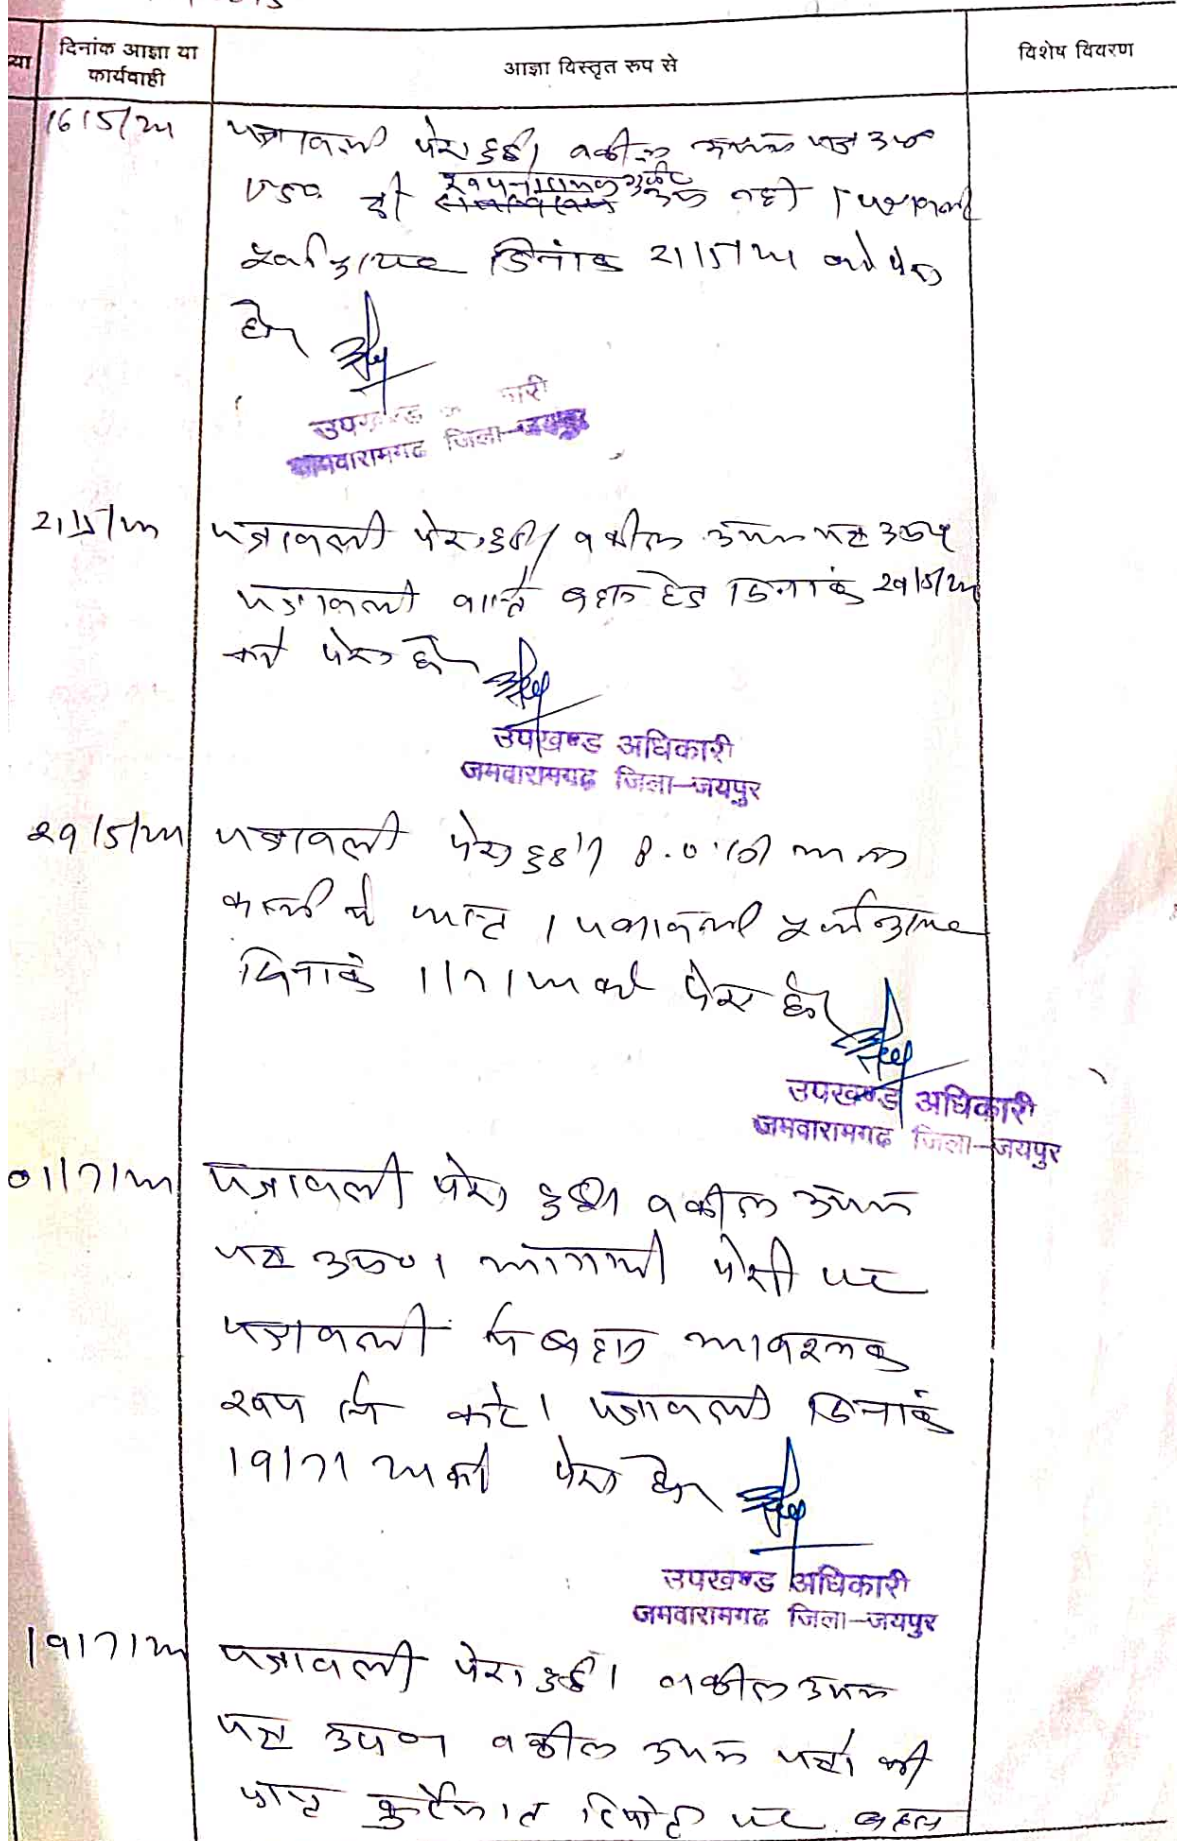 दिनांक आज्ञा या
कार्यवाही
आज्ञा विस्तृत रुप से
विशेष विवरण
16/5/24 पत्रावली पेश हुई। वकील उभय पक्ष उप०
नहीं। पत्रावली
दिनांक 21/5/24 को पेश
हो।
उपखण्ड
जमवारामगढ जिला-जयपुर
21/5/24 पत्रावली पेश हुई। वकील उभय पक्ष उप०
पत्रावली वास्ते बहस हेतु दिनांक 29/5/24
को पेश हो।
उपखण्ड अधिकारी
जमवारामगढ जिला-जयपुर
29/5/24 पत्रावली पेश हुई।
पत्रावली
दिनांक 1/7/24 को पेश हो।
उपखण्ड अधिकारी
जमवारामगढ जिला-जयपुर
01/7/24 पत्रावली पेश हुई। वकील उभय
पक्ष उप०। आगामी पेशी पर
पत्रावली में बहस आवश्यक
रूप से करे। पत्रावली दिनांक
19/7/24 को पेश हो।
उपखण्ड अधिकारी
जमवारामगढ जिला-जयपुर
19/7/24 पत्रावली पेश हुई। वकील उभय
पक्ष उप० वकील उभय पक्षों की
रिपोर्ट पर बहस